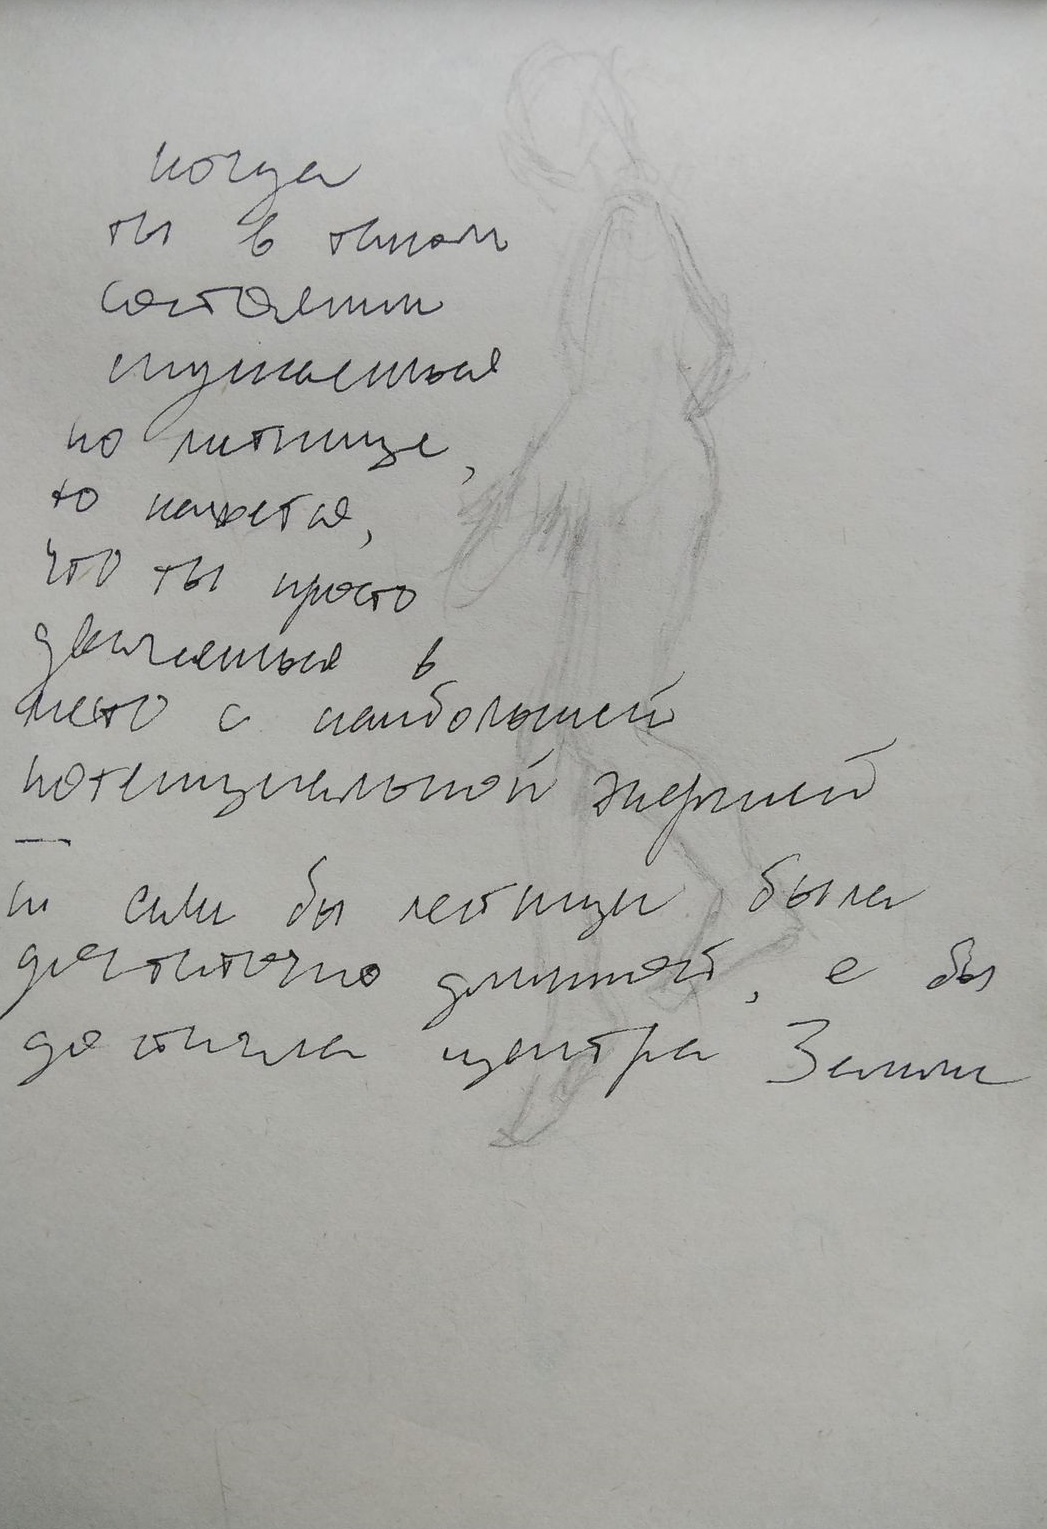 когда
ты в таком
состоянии
спускаешься
по лестнице,
то кажется,
что ты просто
двигаешься в
место с наибольшей
потенциальной энергией
—
и если бы лестница была
достаточно длинной, я бы
достигла центра Земли